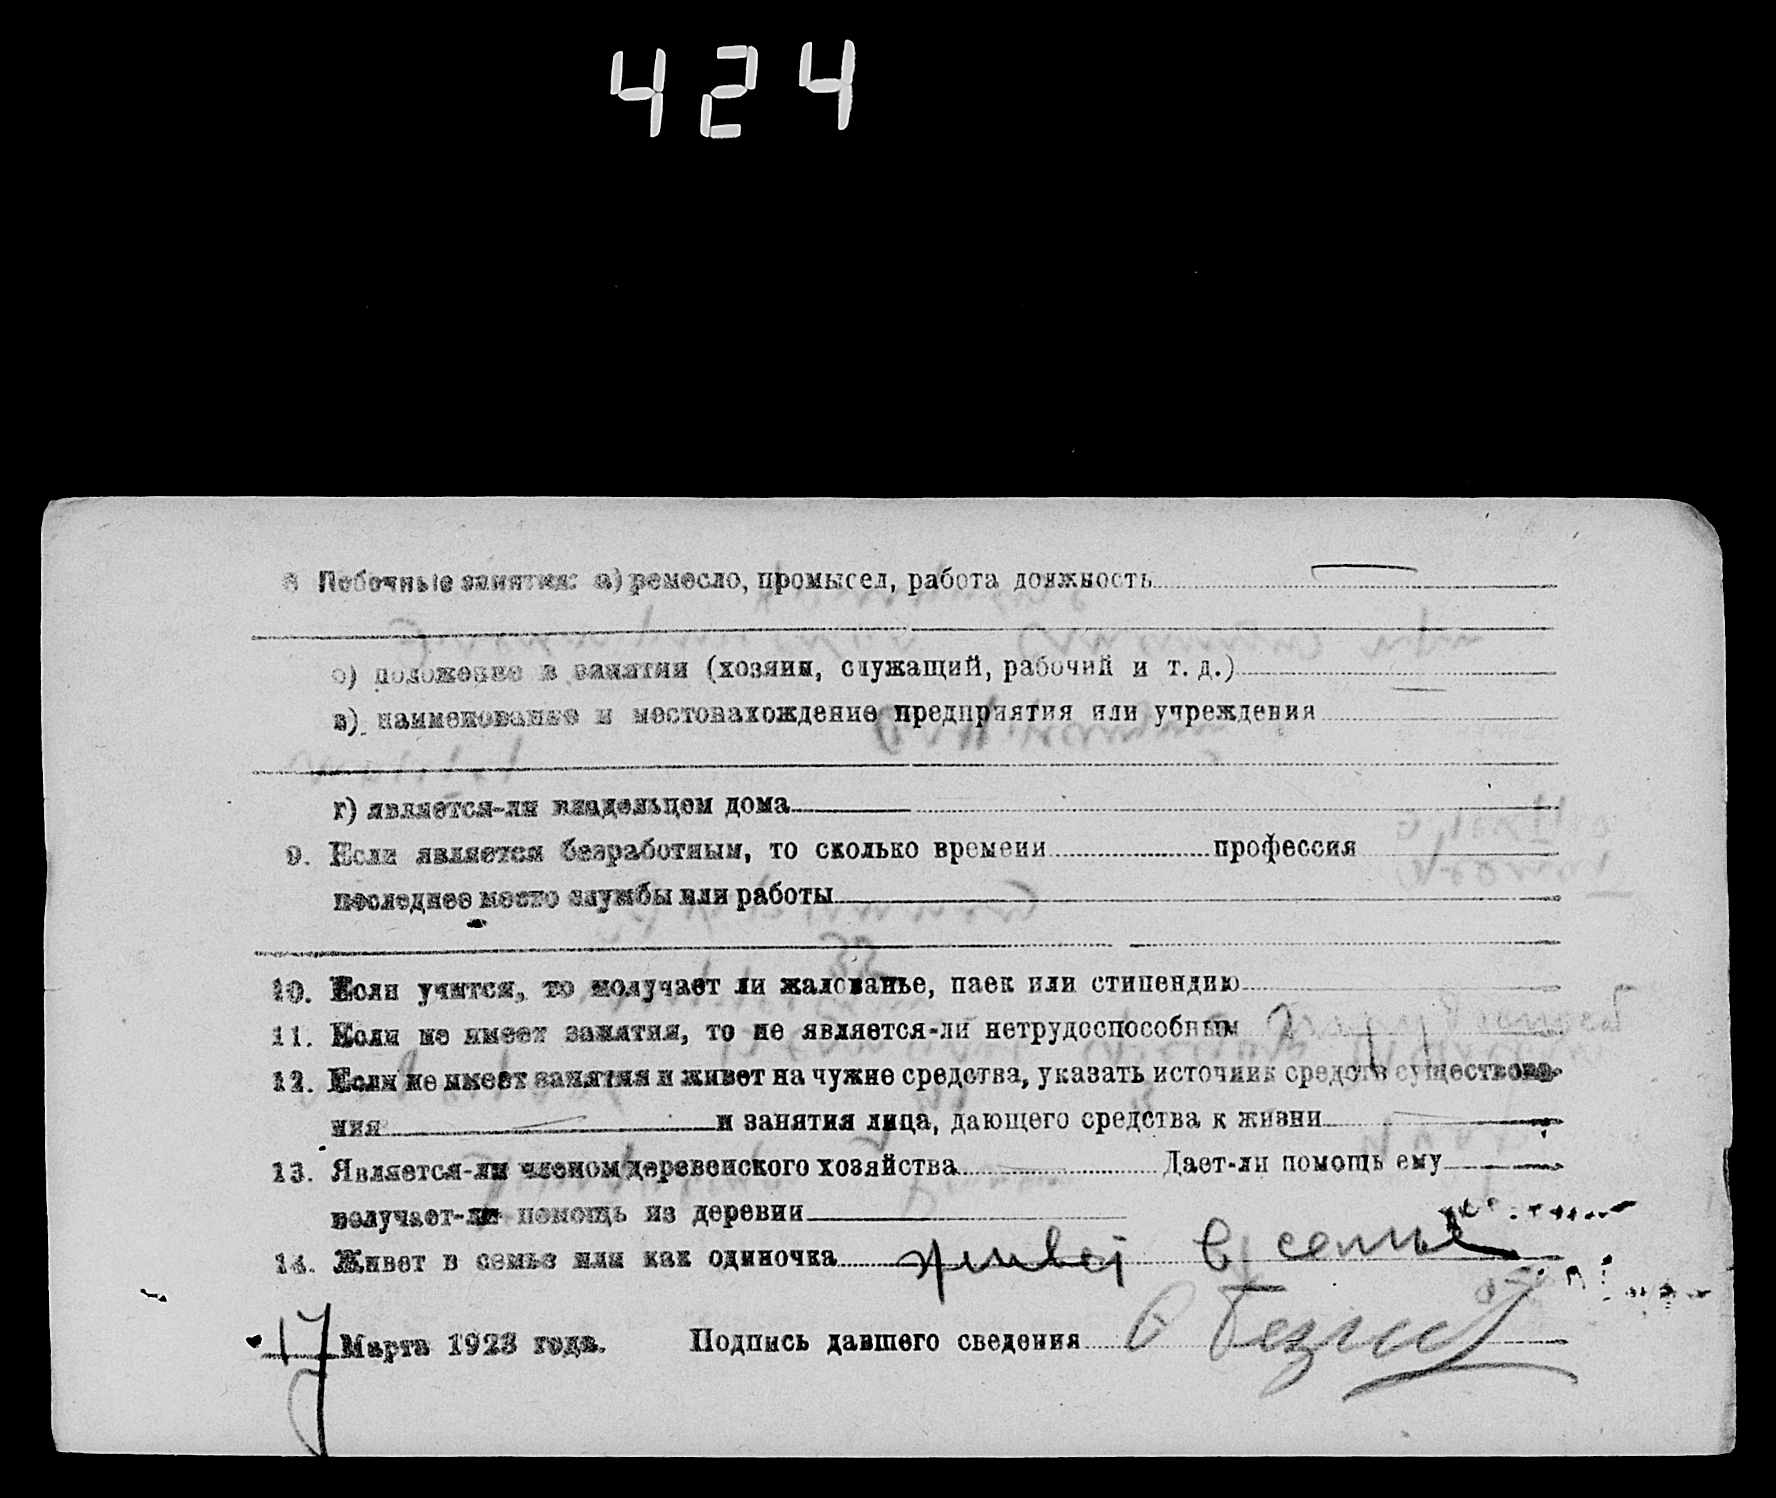 424
8 Побочные занятия: а) ремесло, промысел, работа должность —
б) положение в занятии (хозяин, служащий, рабочий и т. д.) —
в) наименование и местонахождение предприятия или учреждения
г) является-ли владельцем дома
9. Если является безработным, то сколько времени профессия
последнее место службы или работы
10. Если учится, то получает ли жалованье, паек или стипендию
11. Если не имеет занятия, то не является-ли нетрудоспособным
12. Если не имеет занятия и живет на чужие средства, указать источник средств существова-
ния и занятия лица, дающего средства к жизни
13. Является-ли членом деревенского хозяйства Дает-ли помощь ему
получает-ли помощь из деревни
14. Живет в семье или как одиночка живет в семье
17 Марта 1923 года. Подпись давшего сведения